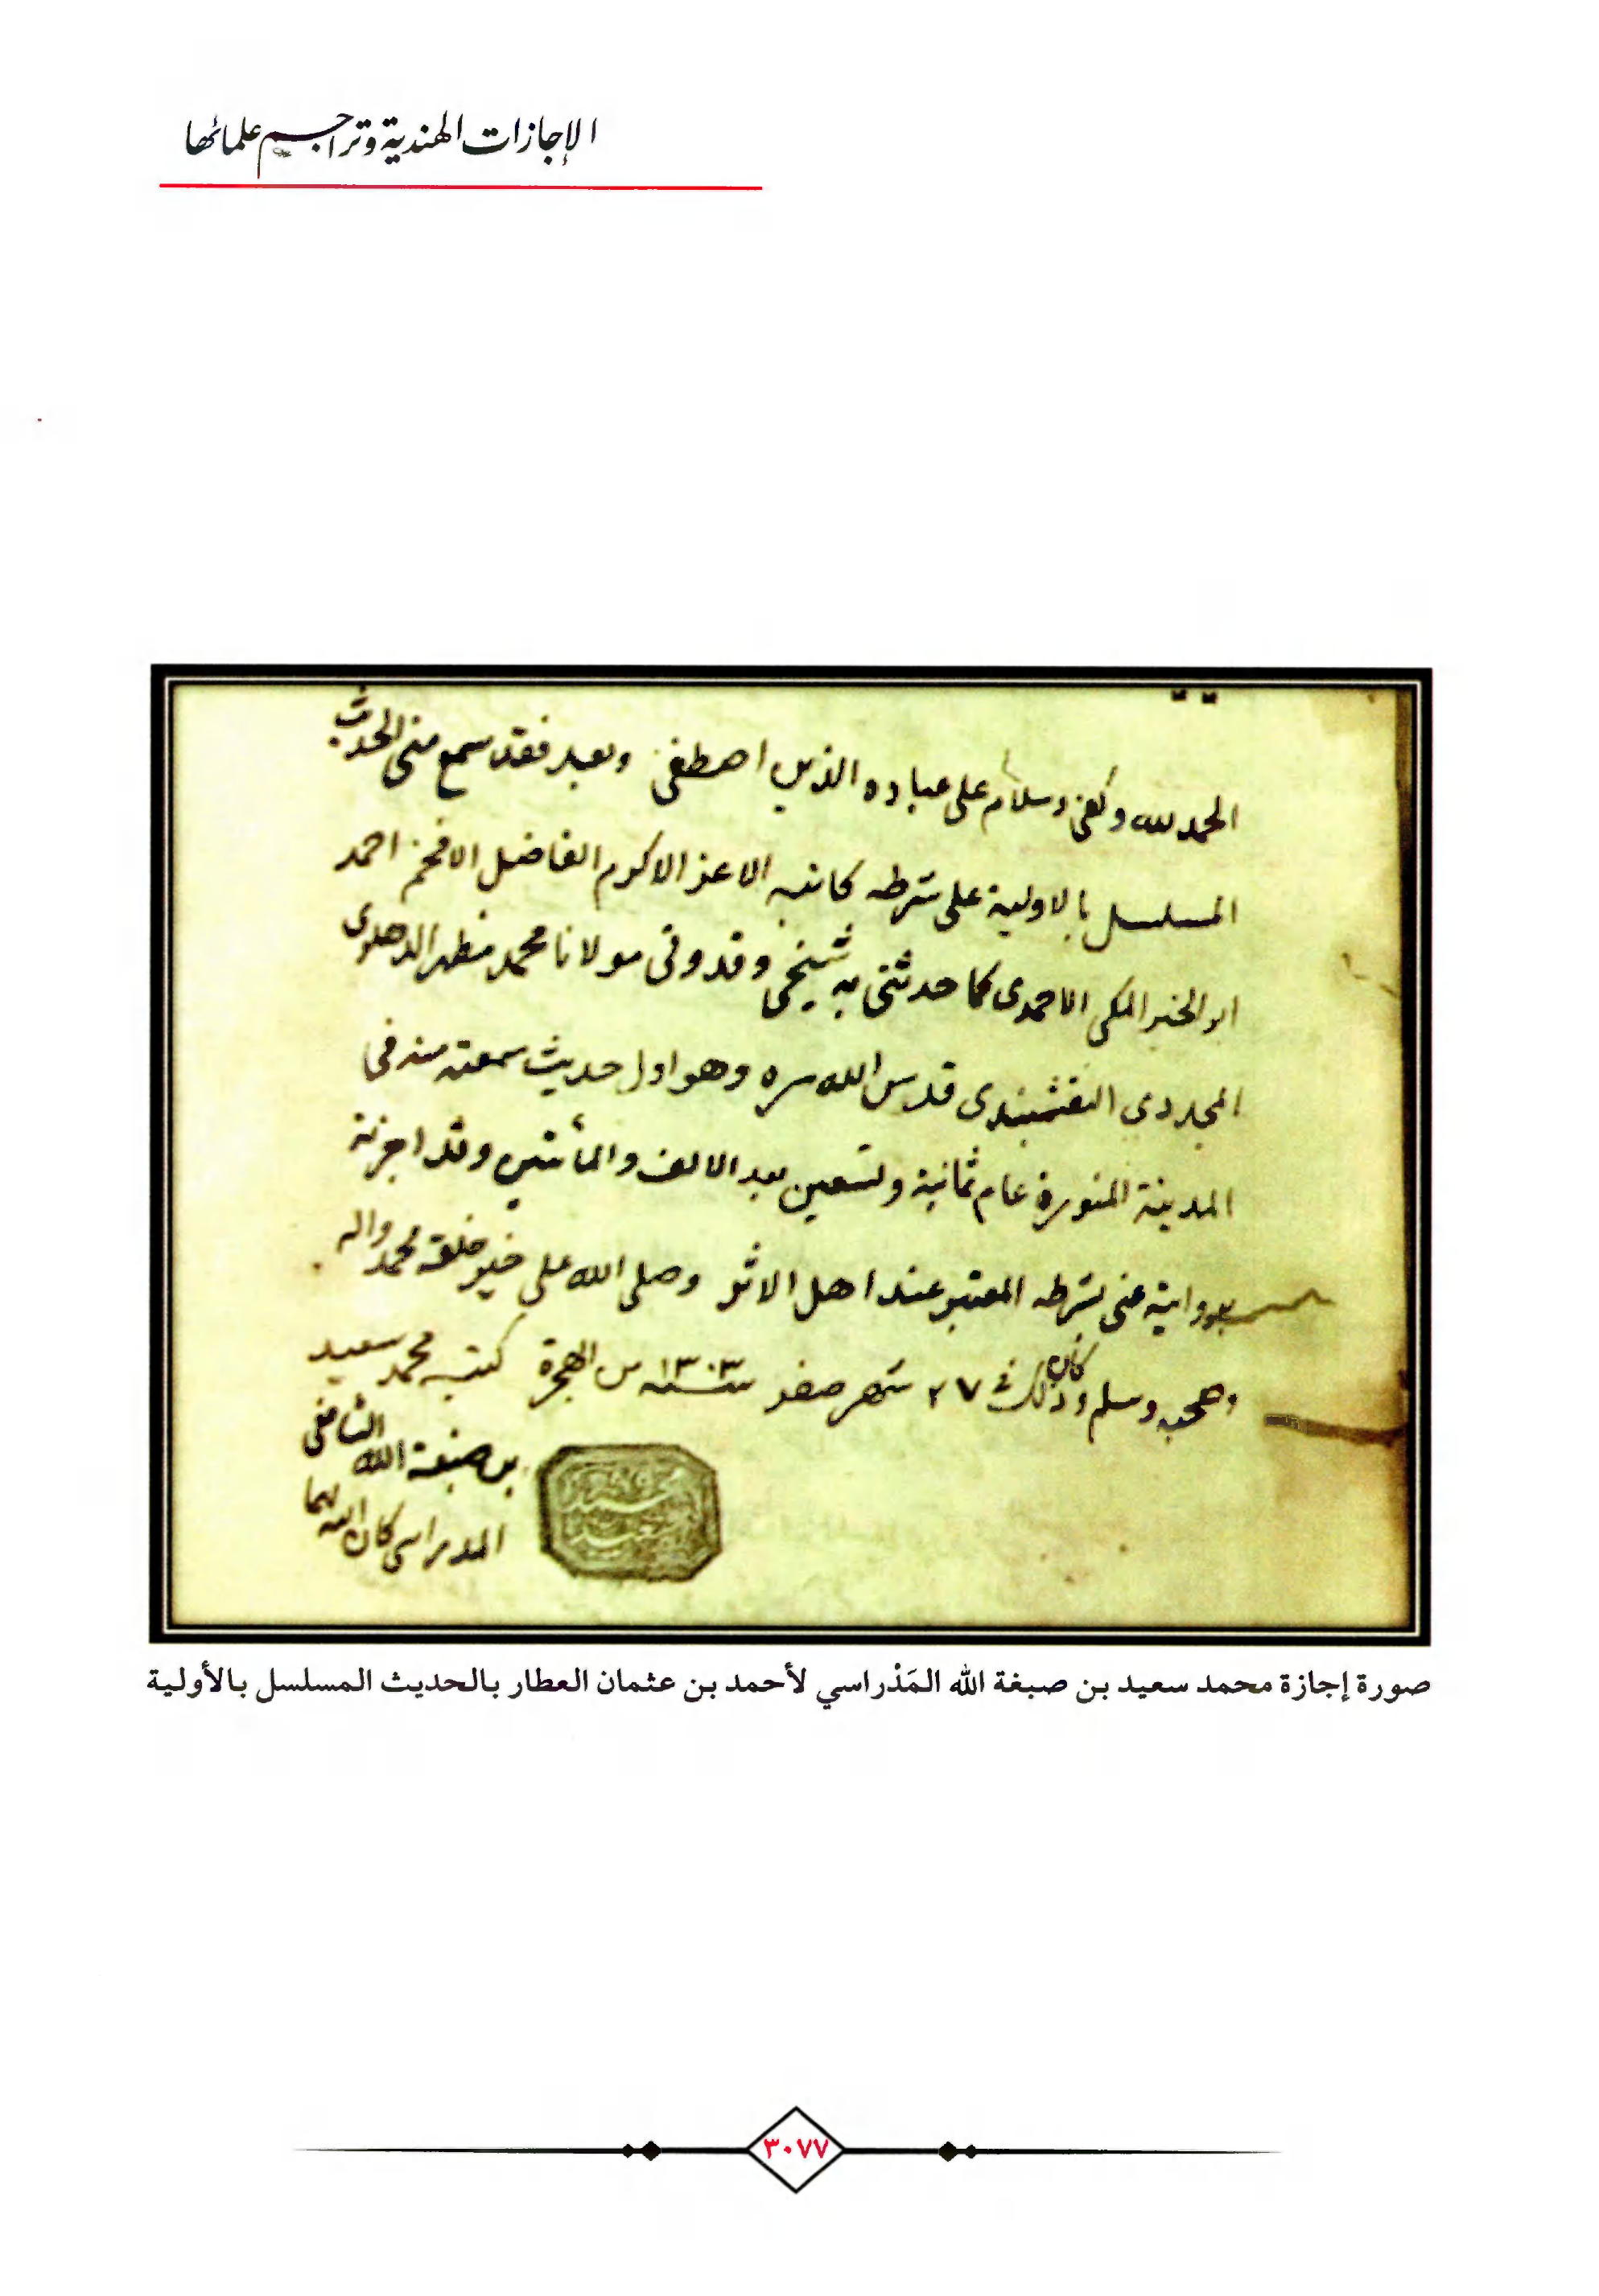 الإجازات الهندية وتراجم علمائها
الحمد لله وكفى وسلام على عباده الذين اصطفى وبعد فقد سمع منى الحديث
المسلسل بالاولية على شرطه كاتبه الاعز الاكرم الفاضل الافخم احمد
ابو الخير المكى الاحمدى كما حدثنى به شيخى وقدوتى مولانا محمد مظهر الدهلوى
المجددى النقشبندى قدس الله سره وهو اول حديث سمعته منه فى
المدينة المنورة عام ثمانية وتسعين بعد الالف والمأتين وقد اجزته
بروايته عنى بشرطه المعتبر عند اهل الاثر وصلى الله على خير خلقه محمد واله
وصحبه وسلم وكان ذلك فى ٢٧ شهر صفر سنه ١٣٠٣ من الهجرة كتبه محمد سعيد
بن صبغة الله الشافعى
المدراسى كان الله لهما
محمد
سعيد
صورة إجازة محمد سعيد بن صبغة الله المَدْراسي لأحمد بن عثمان العطار بالحديث المسلسل بالأولية
٣٠٧٧